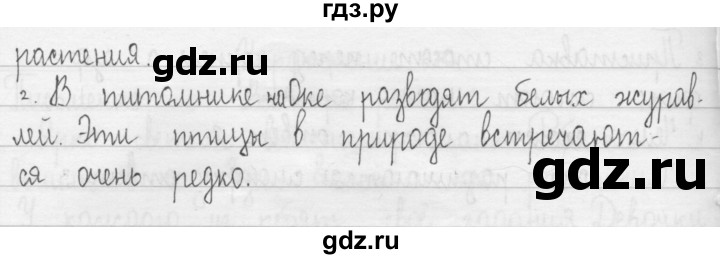 гдз.ру
растения.
2. В питомнике на Оке разводят белых журав-
лей. Эти птицы в природе встречают-
ся очень редко.
gdz.ru
gdz.ru